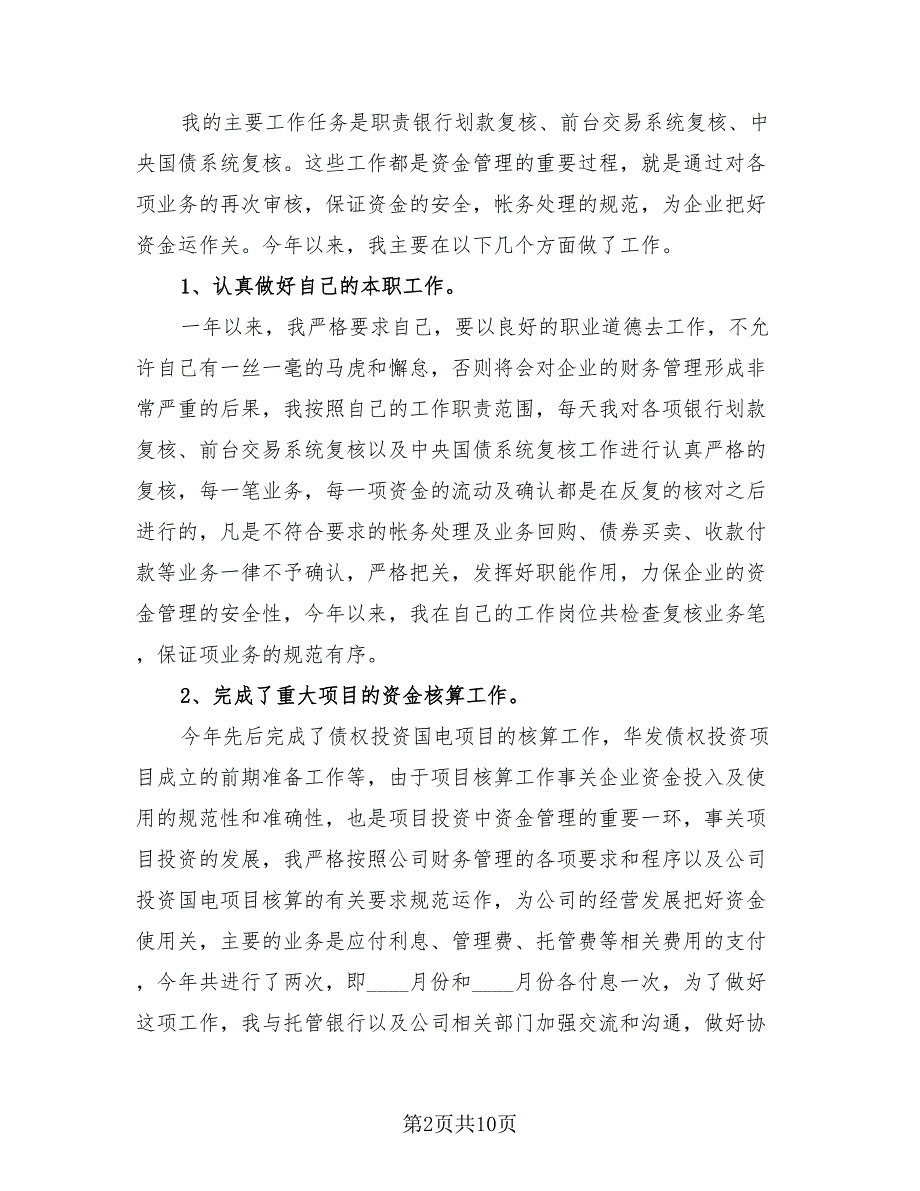 我的主要工作任务是职责银行划款复核、前台交易系统复核、中
央国债系统复核。这些工作都是资金管理的重要过程，就是通过对各
项业务的再次审核，保证资金的安全，帐务处理的规范，为企业把好
资金运作关。今年以来，我主要在以下几个方面做了工作。
1、认真做好自己的本职工作。
一年以来，我严格要求自己，要以良好的职业道德去工作，不允
许自己有一丝一毫的马虎和懈怠，否则将会对企业的财务管理形成非
常严重的后果，我按照自己的工作职责范围，每天我对各项银行划款
复核、前台交易系统复核以及中央国债系统复核工作进行认真严格的
复核，每一笔业务，每一项资金的流动及确认都是在反复的核对之后
进行的，凡是不符合要求的帐务处理及业务回购、债券买卖、收款付
款等业务一律不予确认，严格把关，发挥好职能作用，力保企业的资
金管理的安全性，今年以来，我在自己的工作岗位共检查复核业务笔
，保证项业务的规范有序。
2、完成了重大项目的资金核算工作。
今年先后完成了债权投资国电项目的核算工作，华发债权投资项
目成立的前期准备工作等，由于项目核算工作事关企业资金投入及使
用的规范性和准确性，也是项目投资中资金管理的重要一环，事关项
目投资的发展，我严格按照公司财务管理的各项要求和程序以及公司
投资国电项目核算的有关要求规范运作，为公司的经营发展把好资金
使用关，主要的业务是应付利息、管理费、托管费等相关费用的支付
，今年共进行了两次，即____月份和____月份各付息一次，为了做好
这项工作，我与托管银行以及公司相关部门加强交流和沟通，做好协
第2页共10页